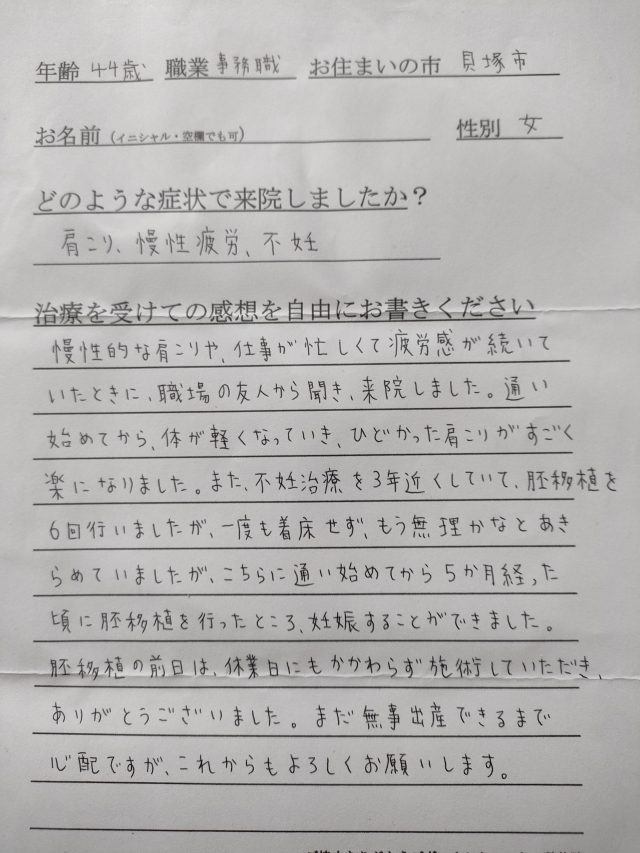 年齢 44歳 職業 事務職 お住まいの市 貝塚市
お名前（イニシャル・空欄でも可） 性別 女
どのような症状で来院しましたか？
肩こり、慢性疲労、不妊
治療を受けての感想を自由にお書きください
慢性的な肩こりや、仕事が忙しくて疲労感が続いて
いたときに、職場の友人から聞き、来院しました。通い
始めてから、体が軽くなっていき、ひどかった肩こりがすごく
楽になりました。また、不妊治療を3年近くしていて、胚移植を
6回行いましたが、一度も着床せず、もう無理かなとあき
らめていましたが、こちらに通い始めてから5か月経った
頃に胚移植を行ったところ、妊娠することができました。
胚移植の前日は、休業日にもかかわらず施術していただき、
ありがとうございました。まだ無事出産できるまで
心配ですが、これからもよろしくお願いします。